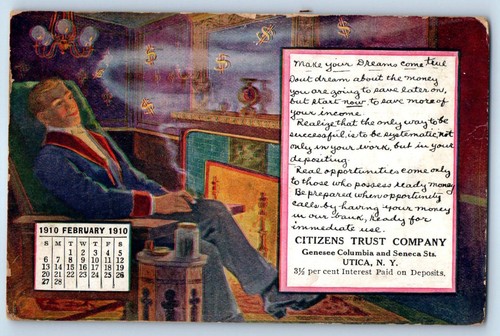 Make your Dreams come true
Dont dream about the money
you are going to save later on,
but start now, to save more of
your income.
Realize that the only way to be
successful, is to be systematic, not
only in your work, but in your
depositing.
Real opportunities come only
to those who possess ready money.
Be prepared when opportunity
calls by having your money
in our bank, Ready for
immediate use.
CITIZENS TRUST COMPANY
Genesee Columbia and Seneca Sts.
UTICA, N. Y.
3½ per cent Interest Paid on Deposits.
1910 FEBRUARY 1910
S M T W T F S
1 2 3 4 5
6 7 8 9 10 11 12
13 14 15 16 17 18 19
20 21 22 23 24 25 26
27 28
$ $ $ $ $